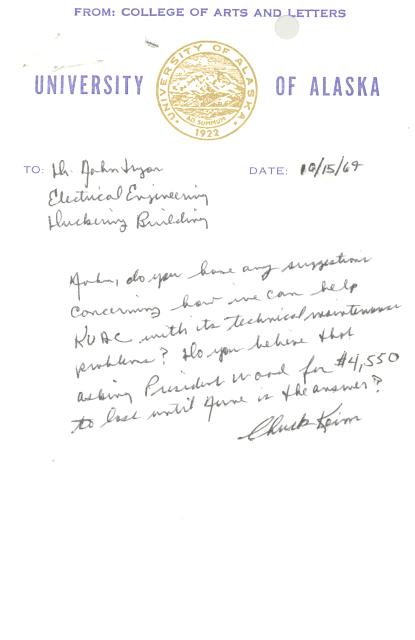 FROM: COLLEGE OF ARTS AND LETTERS
UNIVERSITY OF ALASKA
UNIVERSITY OF ALASKA
AD SUMMUM
1922
TO: Dr. John Tryon
Electrical Engineering
Duckering Building
DATE: 10/15/69
John, do you have any suggestions
concerning how we can help
KUAC with its technical maintenance
problems? Do you believe that
asking President Wood for $4,550
to last until June is the answer?
Chuck Keim